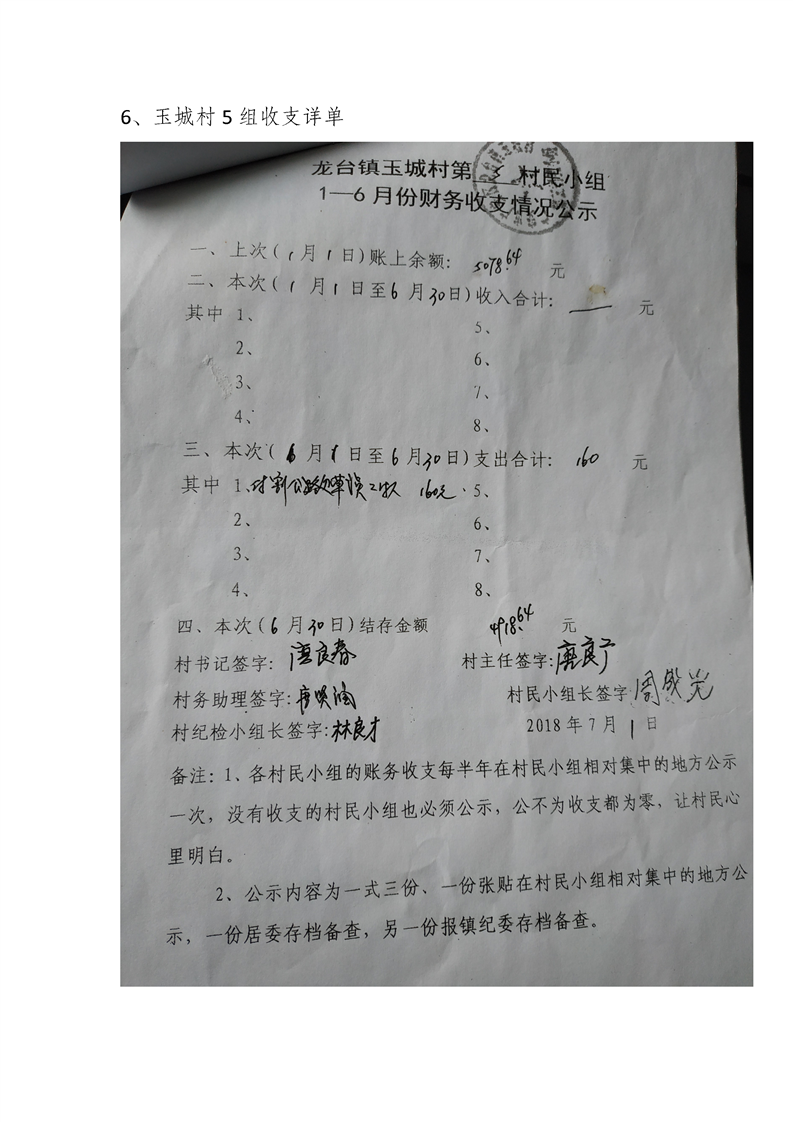 6、玉城村 5 组收支详单
龙台镇玉城村第 5 村民小组
1—6 月份财务收支情况公示
一、上次(1月1日)账上余额: 5078.64 元
二、本次(1月1日至6月30日)收入合计: — 元
其中 1、 5、
2、 6、
3、 7、
4、 8、
三、本次(6月1日至6月30日)支出合计: 160 元
其中 1、 160元. 5、
2、 6、
3、 7、
4、 8、
四、本次(6月30日)结存金额 4918.64 元
村书记签字: 唐良春 村主任签字:
村务助理签字: 村民小组长签字
村纪检小组长签字:林良才 2018年7月1日
备注:1、各村民小组的账务收支每半年在村民小组相对集中的地方公示
一次,没有收支的村民小组也必须公示,公不为收支都为零,让村民心
里明白。
2、公示内容为一式三份、一份张贴在村民小组相对集中的地方公
示,一份居委存档备查,另一份报镇纪委存档备查。